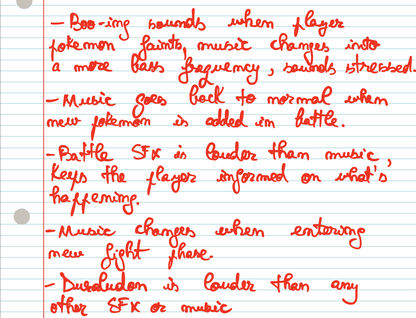 - Boo-ing sounds when player
pokemon faints, music changes into
a more bass frequency, sounds stressed.
- Music goes back to normal when
new pokemon is added in battle.
- Battle SFX is louder than music,
keeps the player informed on what's
happening.
- Music changes when entering
new fight phase.
- Duraludon is louder than any
other SFX or music